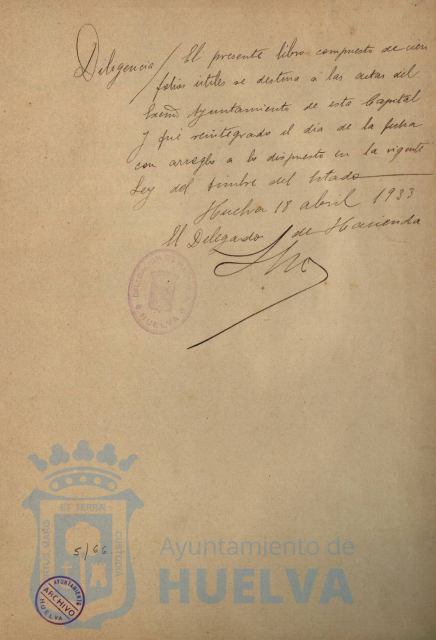 Diligencia / El presente libro compuesto de cien
folios útiles se destina a las actas del
Excmo Ayuntamiento de esta Capital
y fué reintegrado el dia de la fecha
con arreglo a lo dispuesto en la vigente
Ley del timbre del Estado
Huelva 18 abril 1933
El Delegado de Hacienda
HUELVA
ET TERRÆ
CUSTODIA
5/66
Ayuntamiento de
HUELVA
AYUNTAMIENTO
ARCHIVO
HUELVA